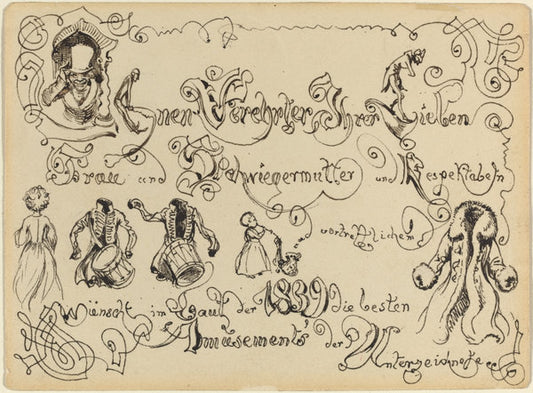 Ihnen Verehrter, Ihrer Lieben
Frau und Schwiegermutter und Respektabeln
vortreflichen
wünscht im Lauf der 1839 die besten
Amusements der Unterzeichnete